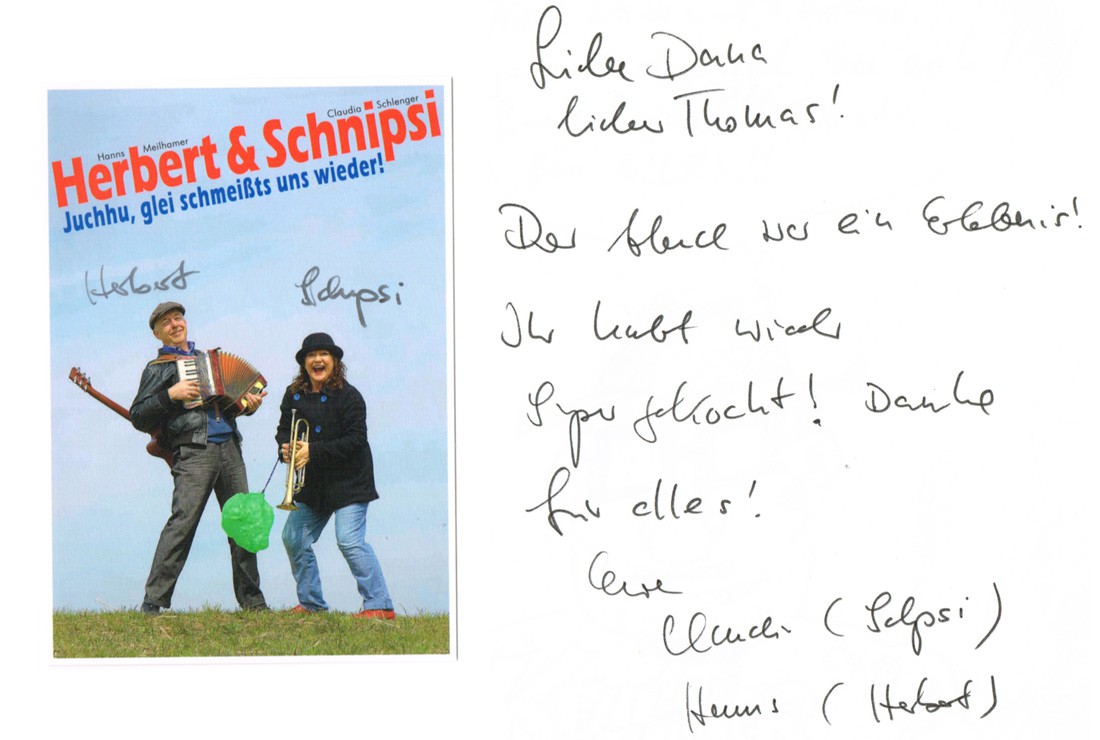 Hanns Meilhamer Claudia Schlenger
Herbert & Schnipsi
Juchhu, glei schmeißts uns wieder!
Herbert Schnipsi
Liebe Dana
lieber Thomas!
Der Abend war ein Erlebnis!
Ihr habt wieder
Super gekocht! Danke
für alles!
Eure
Claudia (Schnipsi)
Hanns (Herbert)